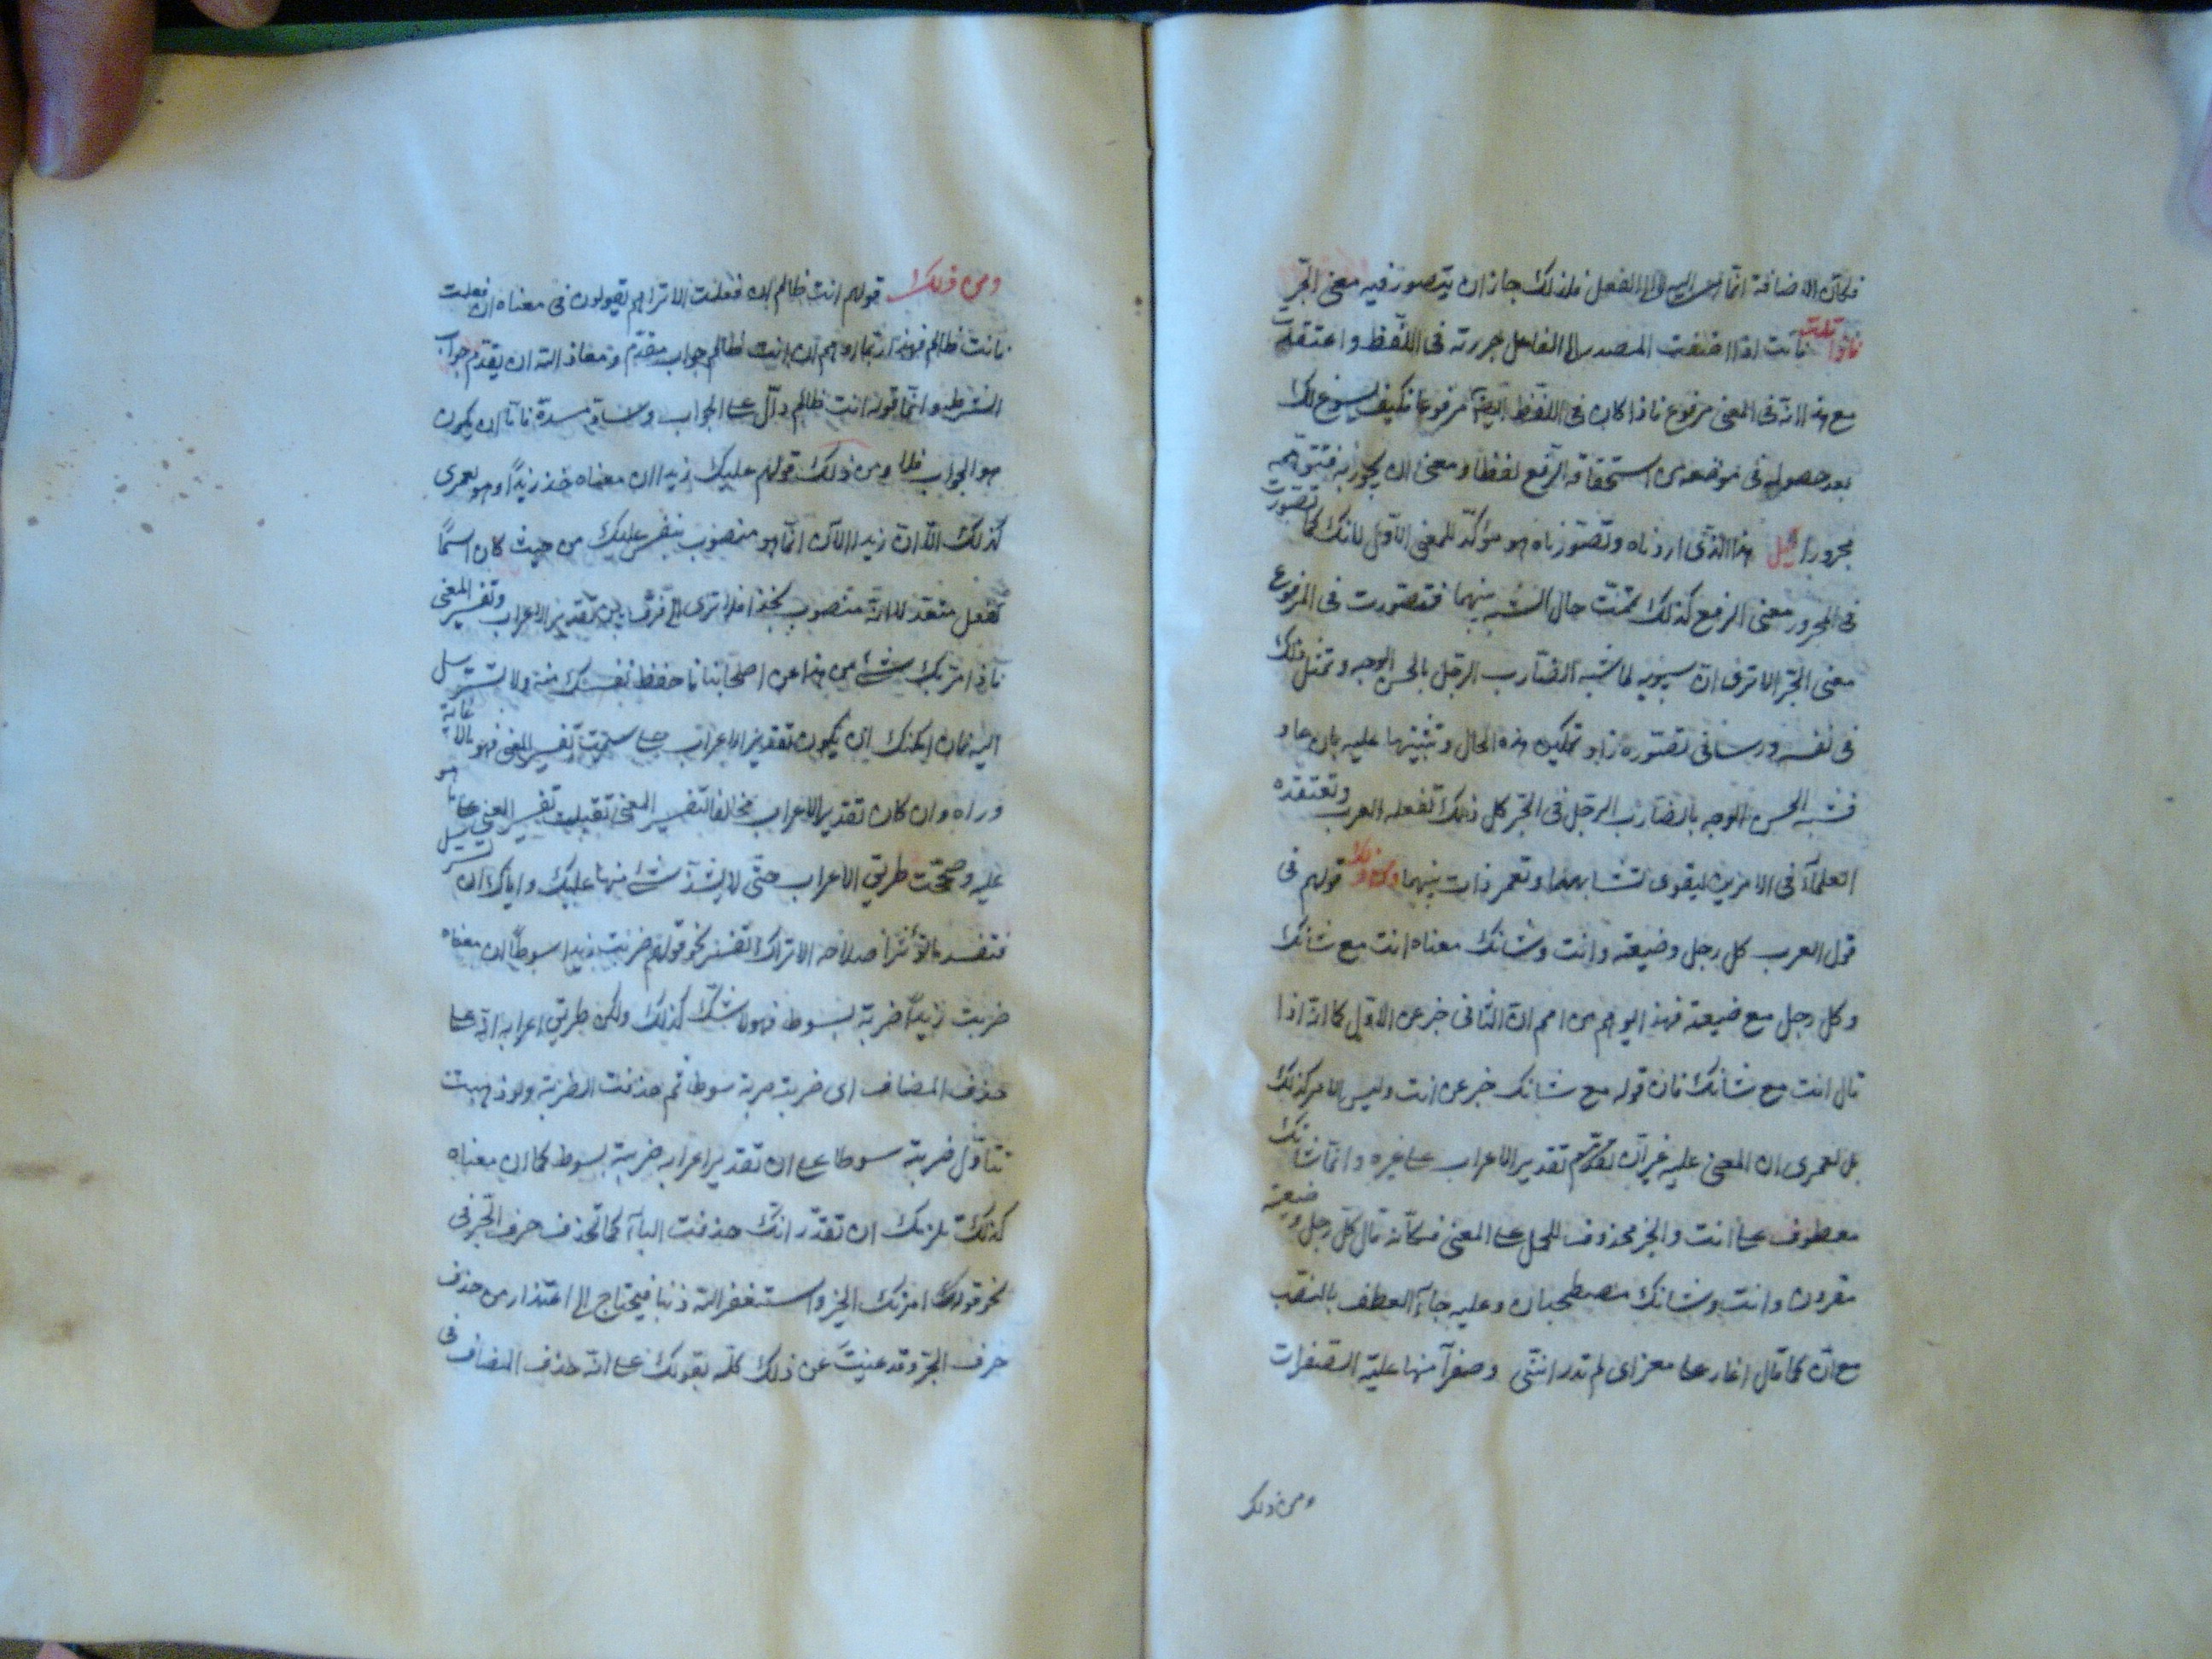 فكأن الاضافة انما الى الفعل فلذلك جاز ان يتصور فيه معنى الجر
فان قلت فانت اذا اضفت المصدر الى الفاعل جررته فى اللفظ واعتقدت
مع هذا انه فى المعنى مرفوع فاذا كان فى اللفظ ايضا مرفوعا فكيف يسوغ لك
بعد حصوله فى موضعه من استحقاقه الرفع لفظا ومعنى ان يجوز به فتتوهمه
مجرورا قيل هذا الذى اردناه وتصورناه هو مؤكد للمعنى الاول لانك كما تصورت
فى المجرور معنى الرفع كذلك تممت حال الشبه بينهما فتصورت فى المرفوع
معنى الجر الا ترى ان سيبويه لما شبه الضارب الرجل بالحسن الوجه وتمثل ذلك
فى نفسه ورسا فى تصوره زاد تمكين هذه الحال وتثبيتها عليه بان عاد
فشبه الحسن الوجه بالضارب الرجل فى الجر كل ذلك تفعله العرب وتعتقده
العلماء فى الامرين ليقوى تشابههما وتعمر ذات بينهما ومن ذلك قولهم فى
قول العرب كل رجل وضيعته وانت وشانك معناه انت مع شانك
وكل رجل مع ضيعته فهذا يوهم من امم ان الثانى خبر عن الاول كما انه اذا
قال انت مع شانك فان قوله مع شانك خبر عن انت وليس الامر كذلك
بل لعمرى ان المعنى عليه غير ان تقدير الاعراب على غيره وانما شانك
معطوف على انت والخبر محذوف للحمل على المعنى فكأنه قال كل رجل وضيعته
مقرونان وانت وشانك مصطحبان وعليه جاء العطف بالنصب
مع ان كما قال اغار على معزاى لم يدر اننى وصفراء منها عبلة الصفرات
ومن ذلك
ومن ذلك قولهم انت ظالم ان فعلت الا تراهم يقولون فى معناه ان فعلت
فانت ظالم فهذا ربما اوهم ان انت ظالم جواب مقدم ومعاذ الله ان يقدم جواب
الشرط وانما قوله انت ظالم دال على الجواب وساد مسده فاما ان يكون
هو الجواب فلا ومن ذلك قولهم عليك زيدا ان معناه خذ زيدا وهو لعمرى
كذلك الا ان زيدا الآن انما هو منصوب بنفس عليك من حيث كان اسما
لفعل متعد لا انه منصوب بخذ افلا ترى الى فرق بين تقدير الاعراب وتفسير المعنى
فاذا مر بك شئ من هذا عن اصحابنا فاحفظ نفسك منه ولا تسترسل
اليه فان امكنك ان يكون تقدير الاعراب على سمت تفسير المعنى فهو مالا غاية
وراه وان كان تقدير الاعراب مخالفا لتفسير المعنى تقبلت تفسير المعنى على ما هو
عليه وصححت طريق الاعراب حتى لا يشذ شئ منها عليك واياك ان تسترسل
فتفسد ما تؤثر اصلاحه الا تراك تفسر نحو قولهم ضربت زيدا سوطا ان معناه
ضربت زيدا ضربة بسوط فهو لا شك كذلك ولكن طريق اعرابه انه على
حذف المضاف اى ضربته ضربة سوط ثم حذفت الضربة ولو ذهبت
تتأول ضربته سوطا على ان تقدير اعرابه ضربة بسوط كما ان معناه
كذلك تلزمك ان تقدر انك حذفت الباء كما تحذف حرف الجر فى
نحو قولك امرتك الخير واستغفر الله ذنبا فيحتاج الى اعتذار من حذف
حرف الجر وقد غنيت عن ذلك كله بقولك على انه حذف المضاف فى